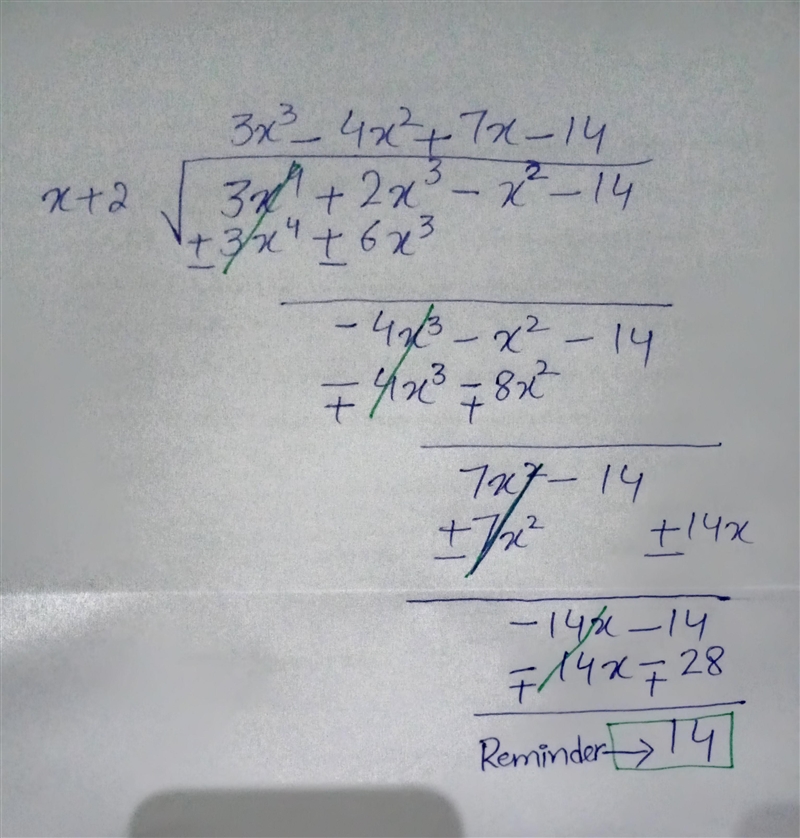 3x³ - 4x² + 7x - 14
x+2 √ 3x⁴ + 2x³ - x² - 14
± 3x⁴ ± 6x³
- 4x³ - x² - 14
∓ 4x³ ∓ 8x²
7x² - 14
± 7x² ± 14x
- 14x - 14
∓ 14x ∓ 28
Reminder → 14